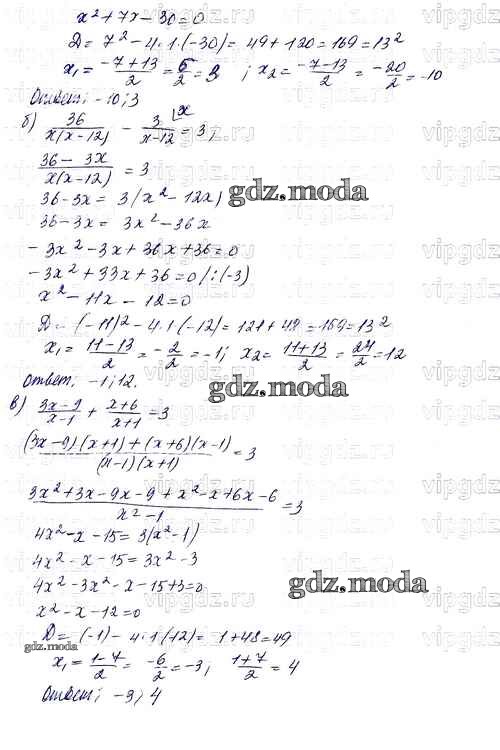 x² + 7x - 30 = 0
D = 7² - 4·1·(-30) = 49 + 120 = 169 = 13²
x₁ = (-7+13)/2 = 6/2 = 3 ; x₂ = (-7-13)/2 = -20/2 = -10
Ответ: -10; 3
б) 36/(x(x-12)) - 3/(x-12) = 3,
x
(36 - 3x)/(x(x-12)) = 3
36-3x = 3(x² - 12x)
gdz.moda
36-3x = 3x² - 36x
-3x² - 3x + 36x + 36 = 0
-3x² + 33x + 36 = 0 /:(-3)
x² - 11x - 12 = 0
D = (-11)² - 4·1·(-12) = 121 + 48 = 169 = 13²
x₁ = (11-13)/2 = -2/2 = -1; x₂ = (11+13)/2 = 24/2 = 12
Ответ: -1; 12.
gdz.moda
в) (3x-9)/(x-1) + (x+6)/(x+1) = 3
((3x-9)(x+1) + (x+6)(x-1))/((x-1)(x+1)) = 3
(3x² + 3x - 9x - 9 + x² - x + 6x - 6)/(x² - 1) = 3
4x² - x - 15 = 3(x² - 1)
4x² - x - 15 = 3x² - 3
4x² - 3x² - x - 15 + 3 = 0
gdz.moda
x² - x - 12 = 0
D = (-1) - 4·1·(12) = 1 + 48 = 49
x₁ = (1-7)/2 = -6/2 = -3; (1+7)/2 = 4
gdz.moda
Ответ: -3; 4
vipgdz.ru